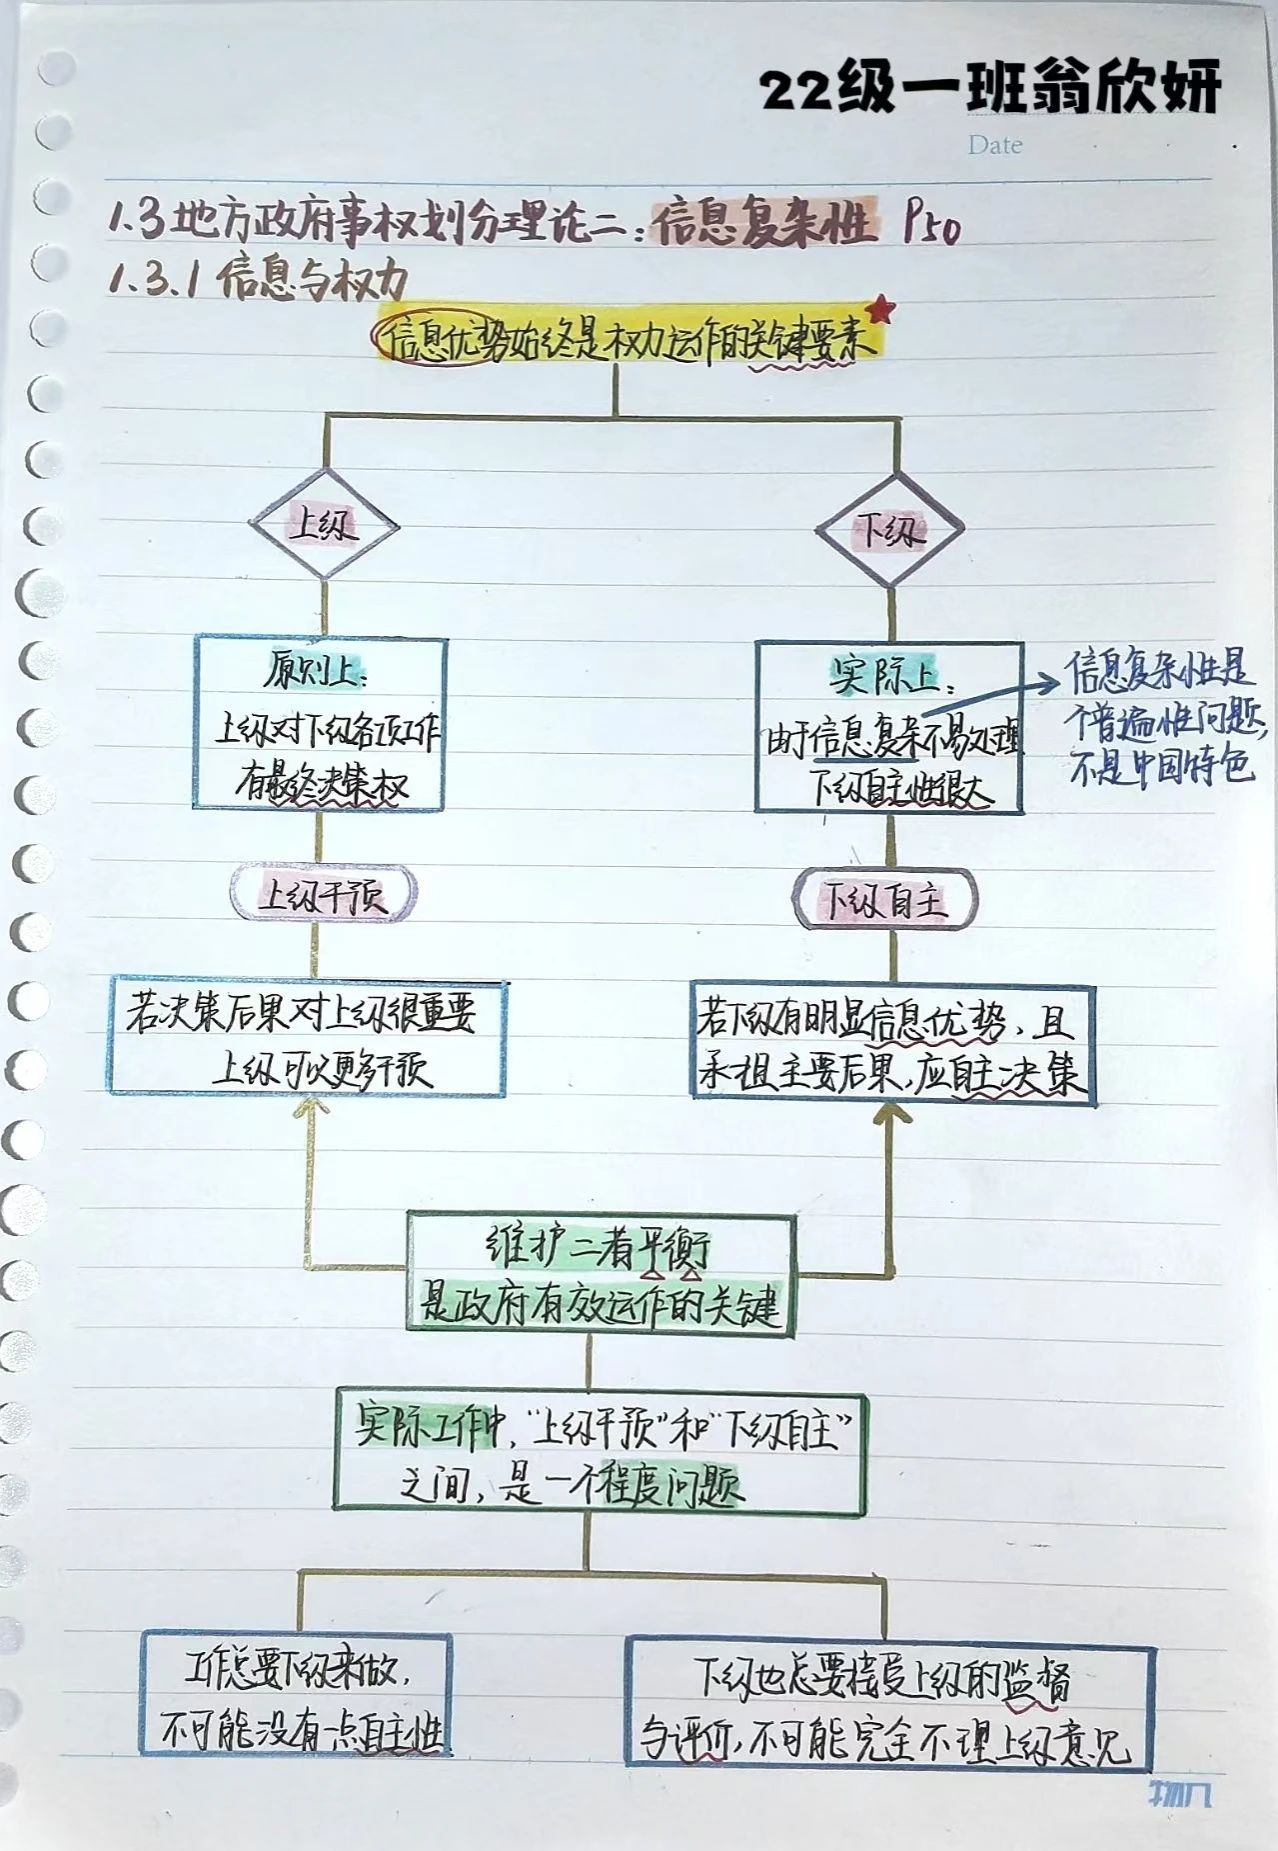 22级一班翁欣妍
Date
1.3地方政府事权划分理论二：信息复杂性 P50
1.3.1 信息与权力
信息优势始终是权力运作的关键要素
上级
下级
原则上：
上级对下级各项工作
有最终决策权
实际上：
由于信息复杂不易处理
下级自主性很大
信息复杂性是
个普遍性问题，
不是中国特色
上级干预
下级自主
若决策后果对上级很重要
上级可以更多干预
若下级有明显信息优势，且
承担主要后果，应自主决策
维护二者平衡
是政府有效运作的关键
实际工作中，“上级干预”和“下级自主”
之间，是一个程度问题
工作总要下级来做，
不可能没有一点自主性
下级也总要接受上级的监督
与评价，不可能完全不理上级意见